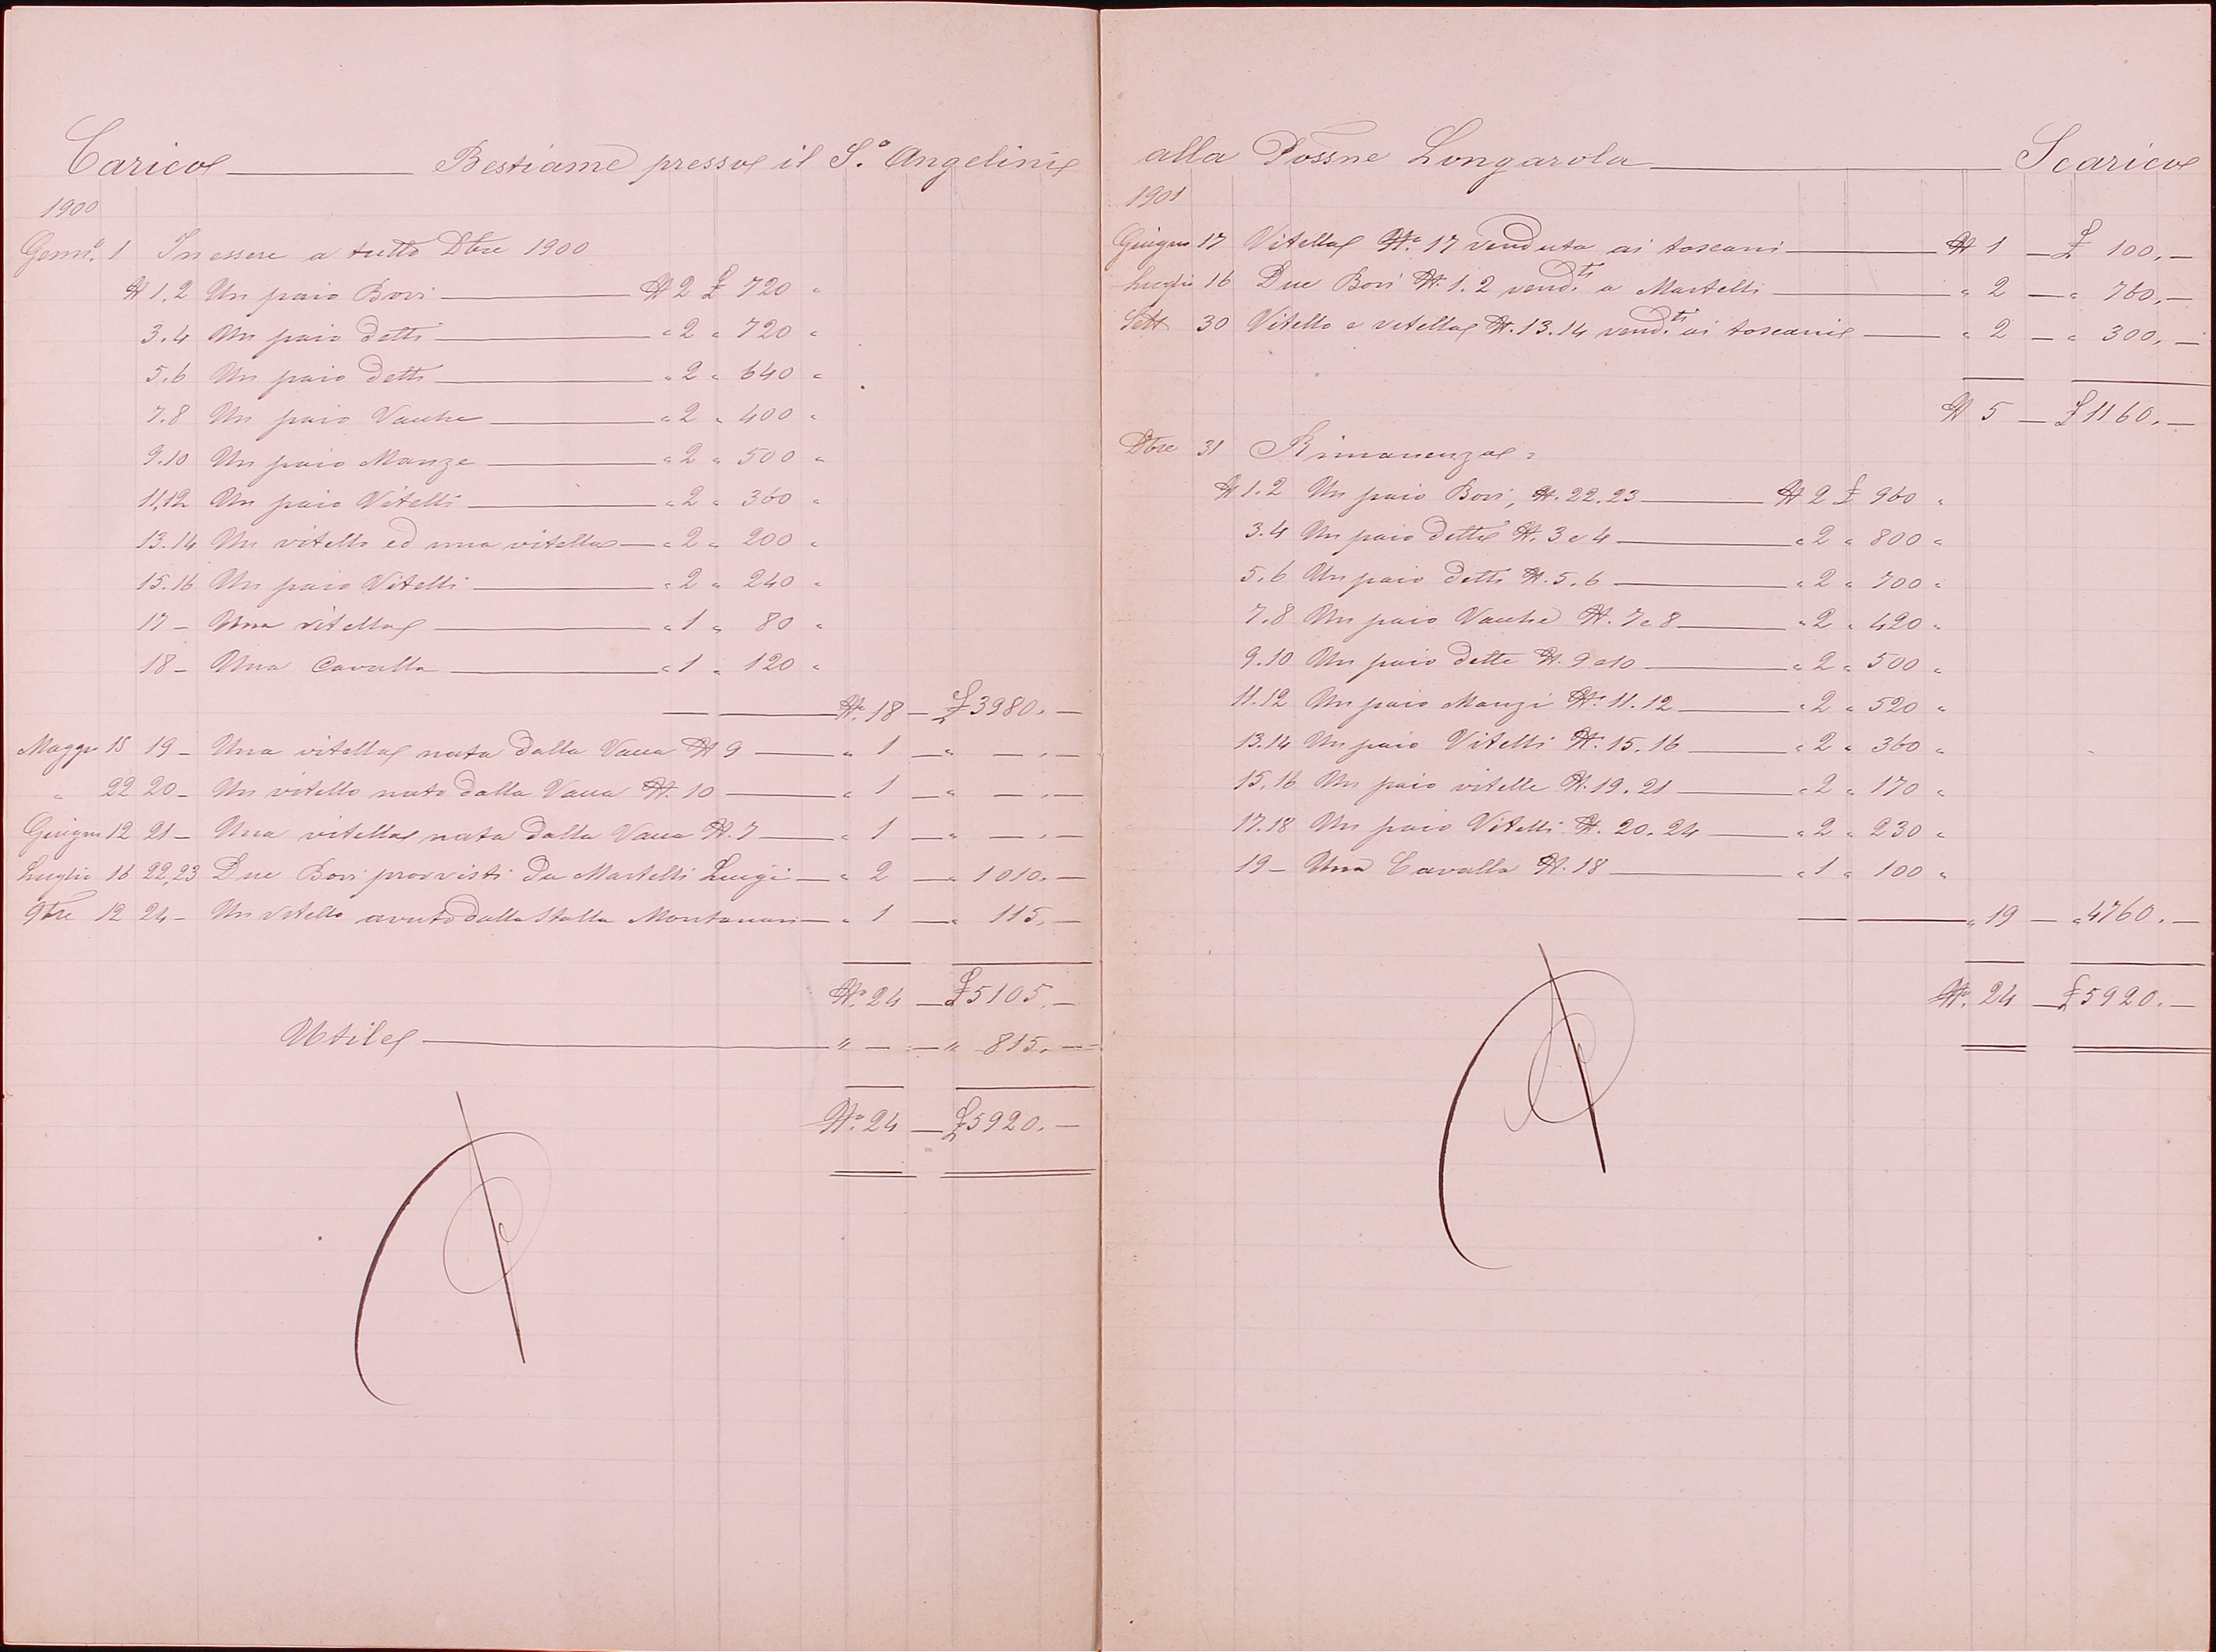 Carico Bestiame presso il S.º Angelini
1900
Genn.º 1 In essere a tutto Dbre 1900
N 1.2 Un paio Bovi N 2 £ 720 "
3.4 Un paio detti " 2 " 720 "
5.6 Un paio detti " 2 " 640 "
7.8 Un paio Vacche " 2 " 400 "
9.10 Un paio Manze " 2 " 500 "
11.12 Un paio Vitelli " 2 " 360 "
13.14 Un vitello ed una vitella " 2 " 200 "
15.16 Un paio Vitelli " 2 " 240 "
17 – Una vitella " 1 " 80 "
18 – Una Cavalla " 1 " 120 "
N.º 18 – £ 3980. –
Maggio 15 19 – Una vitella nata dalla Vacca N 9 " 1 – " – . –
" 22 20 – Un vitello nato dalla Vacca N. 10 " 1 – " – . –
Giugno 12 21 – Una vitella nata dalla Vacca N. 7 " 1 – " – . –
Luglio 16 22.23 Due Bovi provvisti da Martelli Luigi – " 2 – " 1010. –
9bre 12 24 – Un vitello avuto dalla Stalla Montanari – " 1 – " 115. –
N.º 24 – £ 5105. –
Utile " – – " 815. –
N.º 24 – £ 5920. –
alla Possne Longarola Scarico
1901
Giugno 17 Vitella N.º 17 venduta ai toscani N 1 – £ 100. –
Luglio 16 Due Bovi N. 1.2 vend.ti a Martelli " 2 – " 760. –
Sett 30 Vitello e vitella N. 13.14 vend.ti ai toscani " 2 – " 300. –
N 5 – £ 1160. –
Dbre 31 Rimanenza :
N 1.2 Un paio Bovi, N. 22.23 N 2 £ 960 "
3.4 Un paio detti N. 3 e 4 " 2 " 800 "
5.6 Un paio detti N. 5.6 " 2 " 700 "
7.8 Un paio Vacche N. 7 e 8 " 2 " 420 "
9.10 Un paio dette N. 9 e 10 " 2 " 500 "
11.12 Un paio Manzi N.º 11.12 " 2 " 520 "
13.14 Un paio Vitelli N. 15.16 " 2 " 360 "
15.16 Un paio vitelle N. 19.21 " 2 " 170 "
17.18 Un paio Vitelli N. 20.24 " 2 " 230 "
19 – Una Cavalla N. 18 " 1 " 100 "
" 19 – " 4760. –
N.º 24 – £ 5920. –